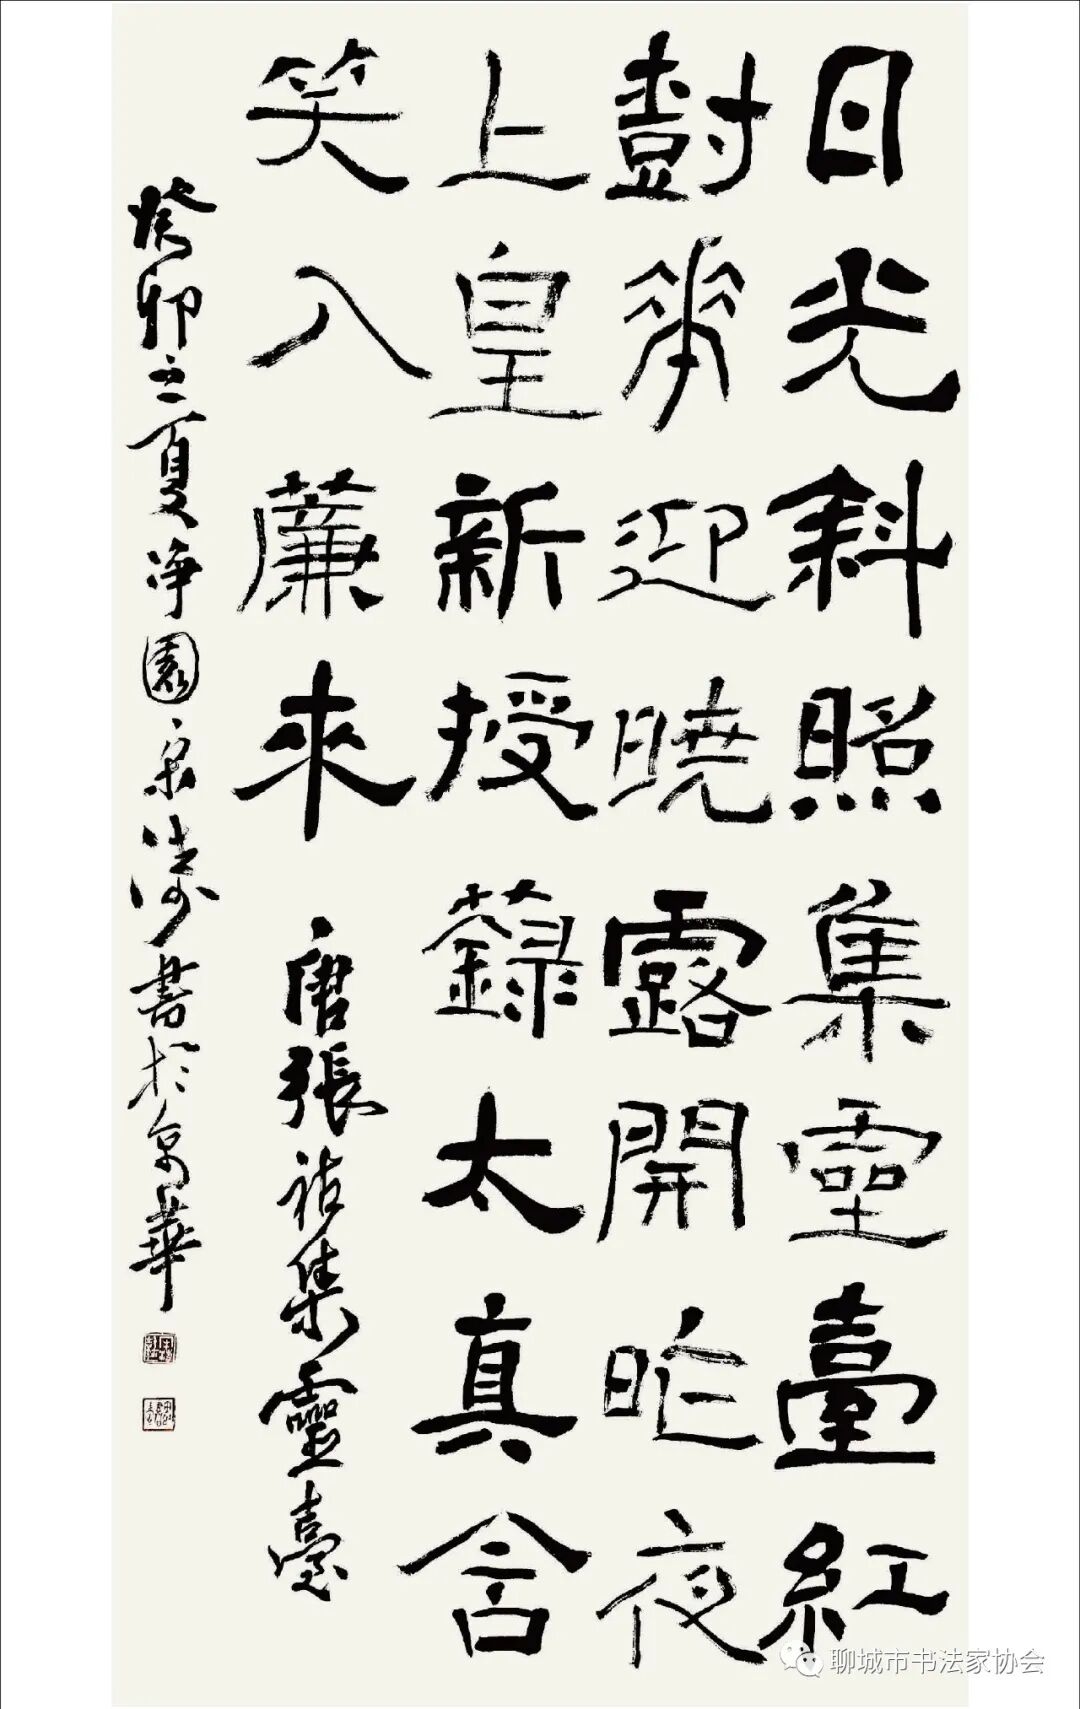 日光斜照集靈臺紅
樹花迎曉露開昨夜
上皇新授籙太真含
笑入簾來 唐張祜集靈臺
癸卯之夏淨園書於京華
聊城市书法家协会